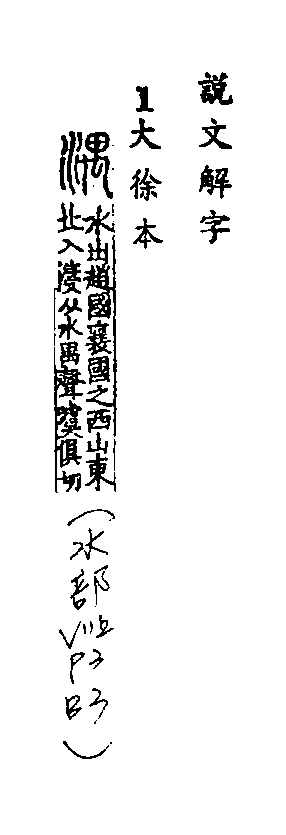 說文解字
1大徐本
湡
水出趙國襄國之西山東
北入濅从水禺聲噳俱切
(水部
P3
B3)